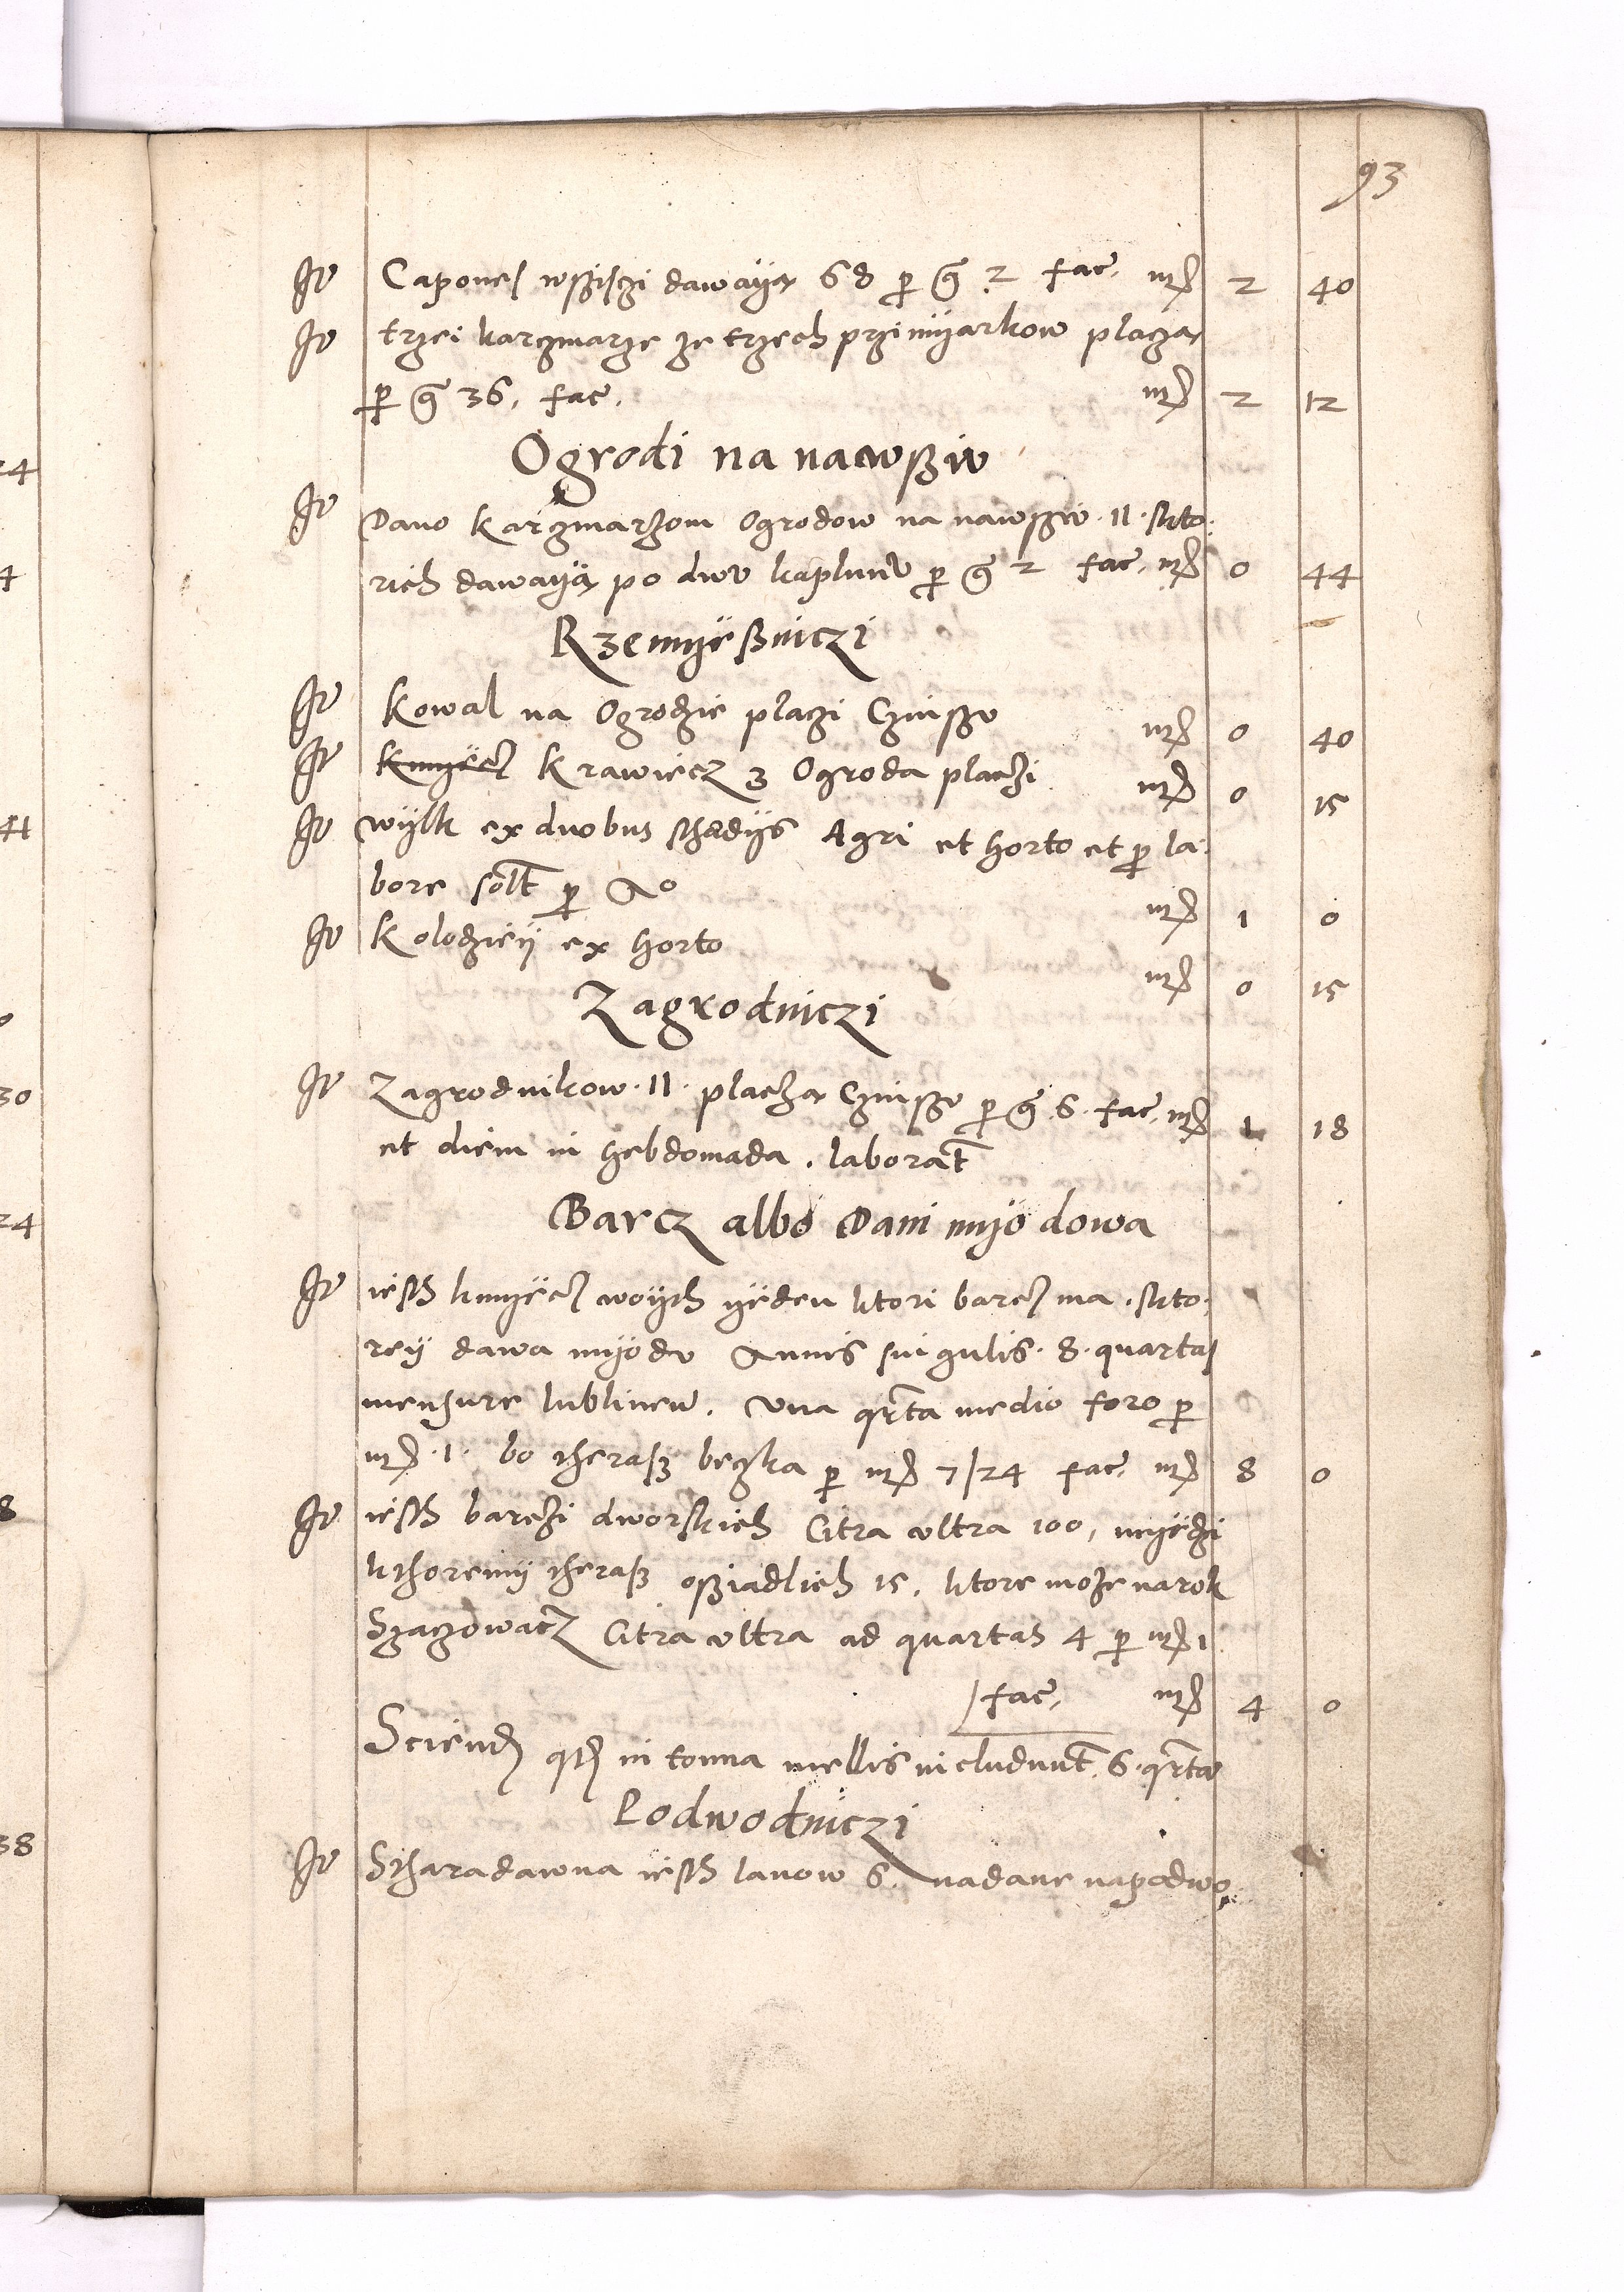 93
It Capones wssiſzi dawaya 68 p g 2 fac. mrc 2 40
It trzei karczmarze ze trzech przimyarkow placza
p g 36. fac. mrc 2 12
Ogrodi na nawssiv
It Dano karczmarzom Ogrodow na nawssiv · 11 · kto:
rich dawaya po dwv kaplunv p g 2 fac. mrc 0 44
Rzemyessniczi
It Kowal na Ogrodzie placzi Czinssv mrc 0 40
It Kmyecz Krawiecz z Ogroda placzi mrc 0 15
It wylk ex duobus Agri et horto et p la:
bore solt p Ao mrc 1 0
It Kolodzieÿ ex horto mrc 0 15
Zagrodniczi
It Zagrodnikow · 11 · placza Czinssv p g 6 · fac. mrc 1 18
et diem in hebdomada . laborat
Barcz albo Dani myodowa
It iesth kmyecz woyth yeden ktori barcz ma . kto:
reÿ dawa myodv Annis singulis · 8 · quartas
mensure lublinen. Vna qrta medio foro p
mrc · 1 · bo theraß beczka p mrc 7/24 fac. mrc 8 0
It iesth barczi dworskich Citra vltra 100, myedzi
kthoremy theraß ossiadlich 15, ktore może na rok
Szaczowacz Citra vltra ad quartas 4 p mrc 1
fac. mrc 4 0
Sciend qd in tonna mellis includunt 6 · qrtas
Podwodniczi
It Stharadawna iesth lanow 6. nadane na podwo